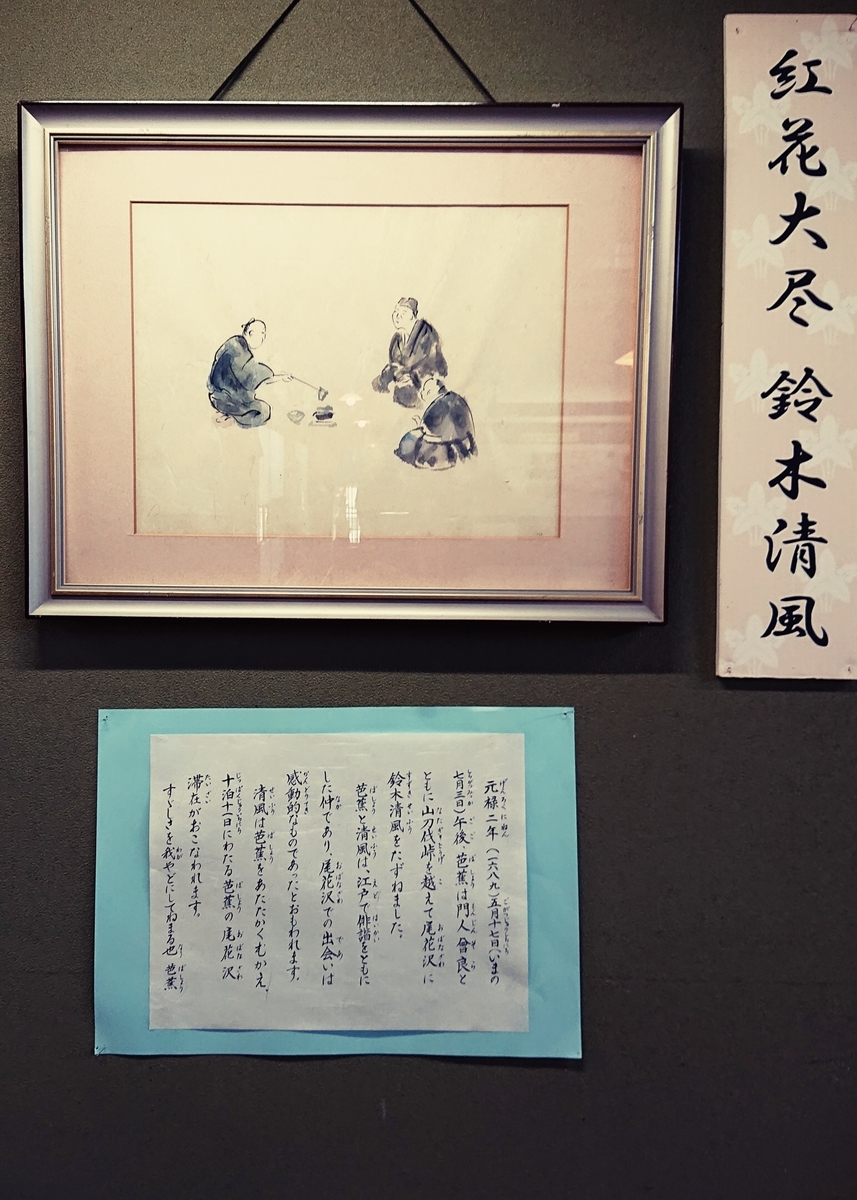 紅花大尽 鈴木清風
元禄二年(一六八九)五月十七日(いまの
七月三日)午後、芭蕉は門人曾良と
ともに山刀伐峠を越えて尾花沢に
鈴木清風をたずねました。
芭蕉と清風は、江戸で俳諧をともに
した仲であり、尾花沢での出会いは
感動的なものであったとおもわれます。
清風は芭蕉をあたたかくむかえ、
十泊十一日にわたる芭蕉の尾花沢
滞在がおこなわれます。
すゞしさを我やどにしてねまる也 芭蕉